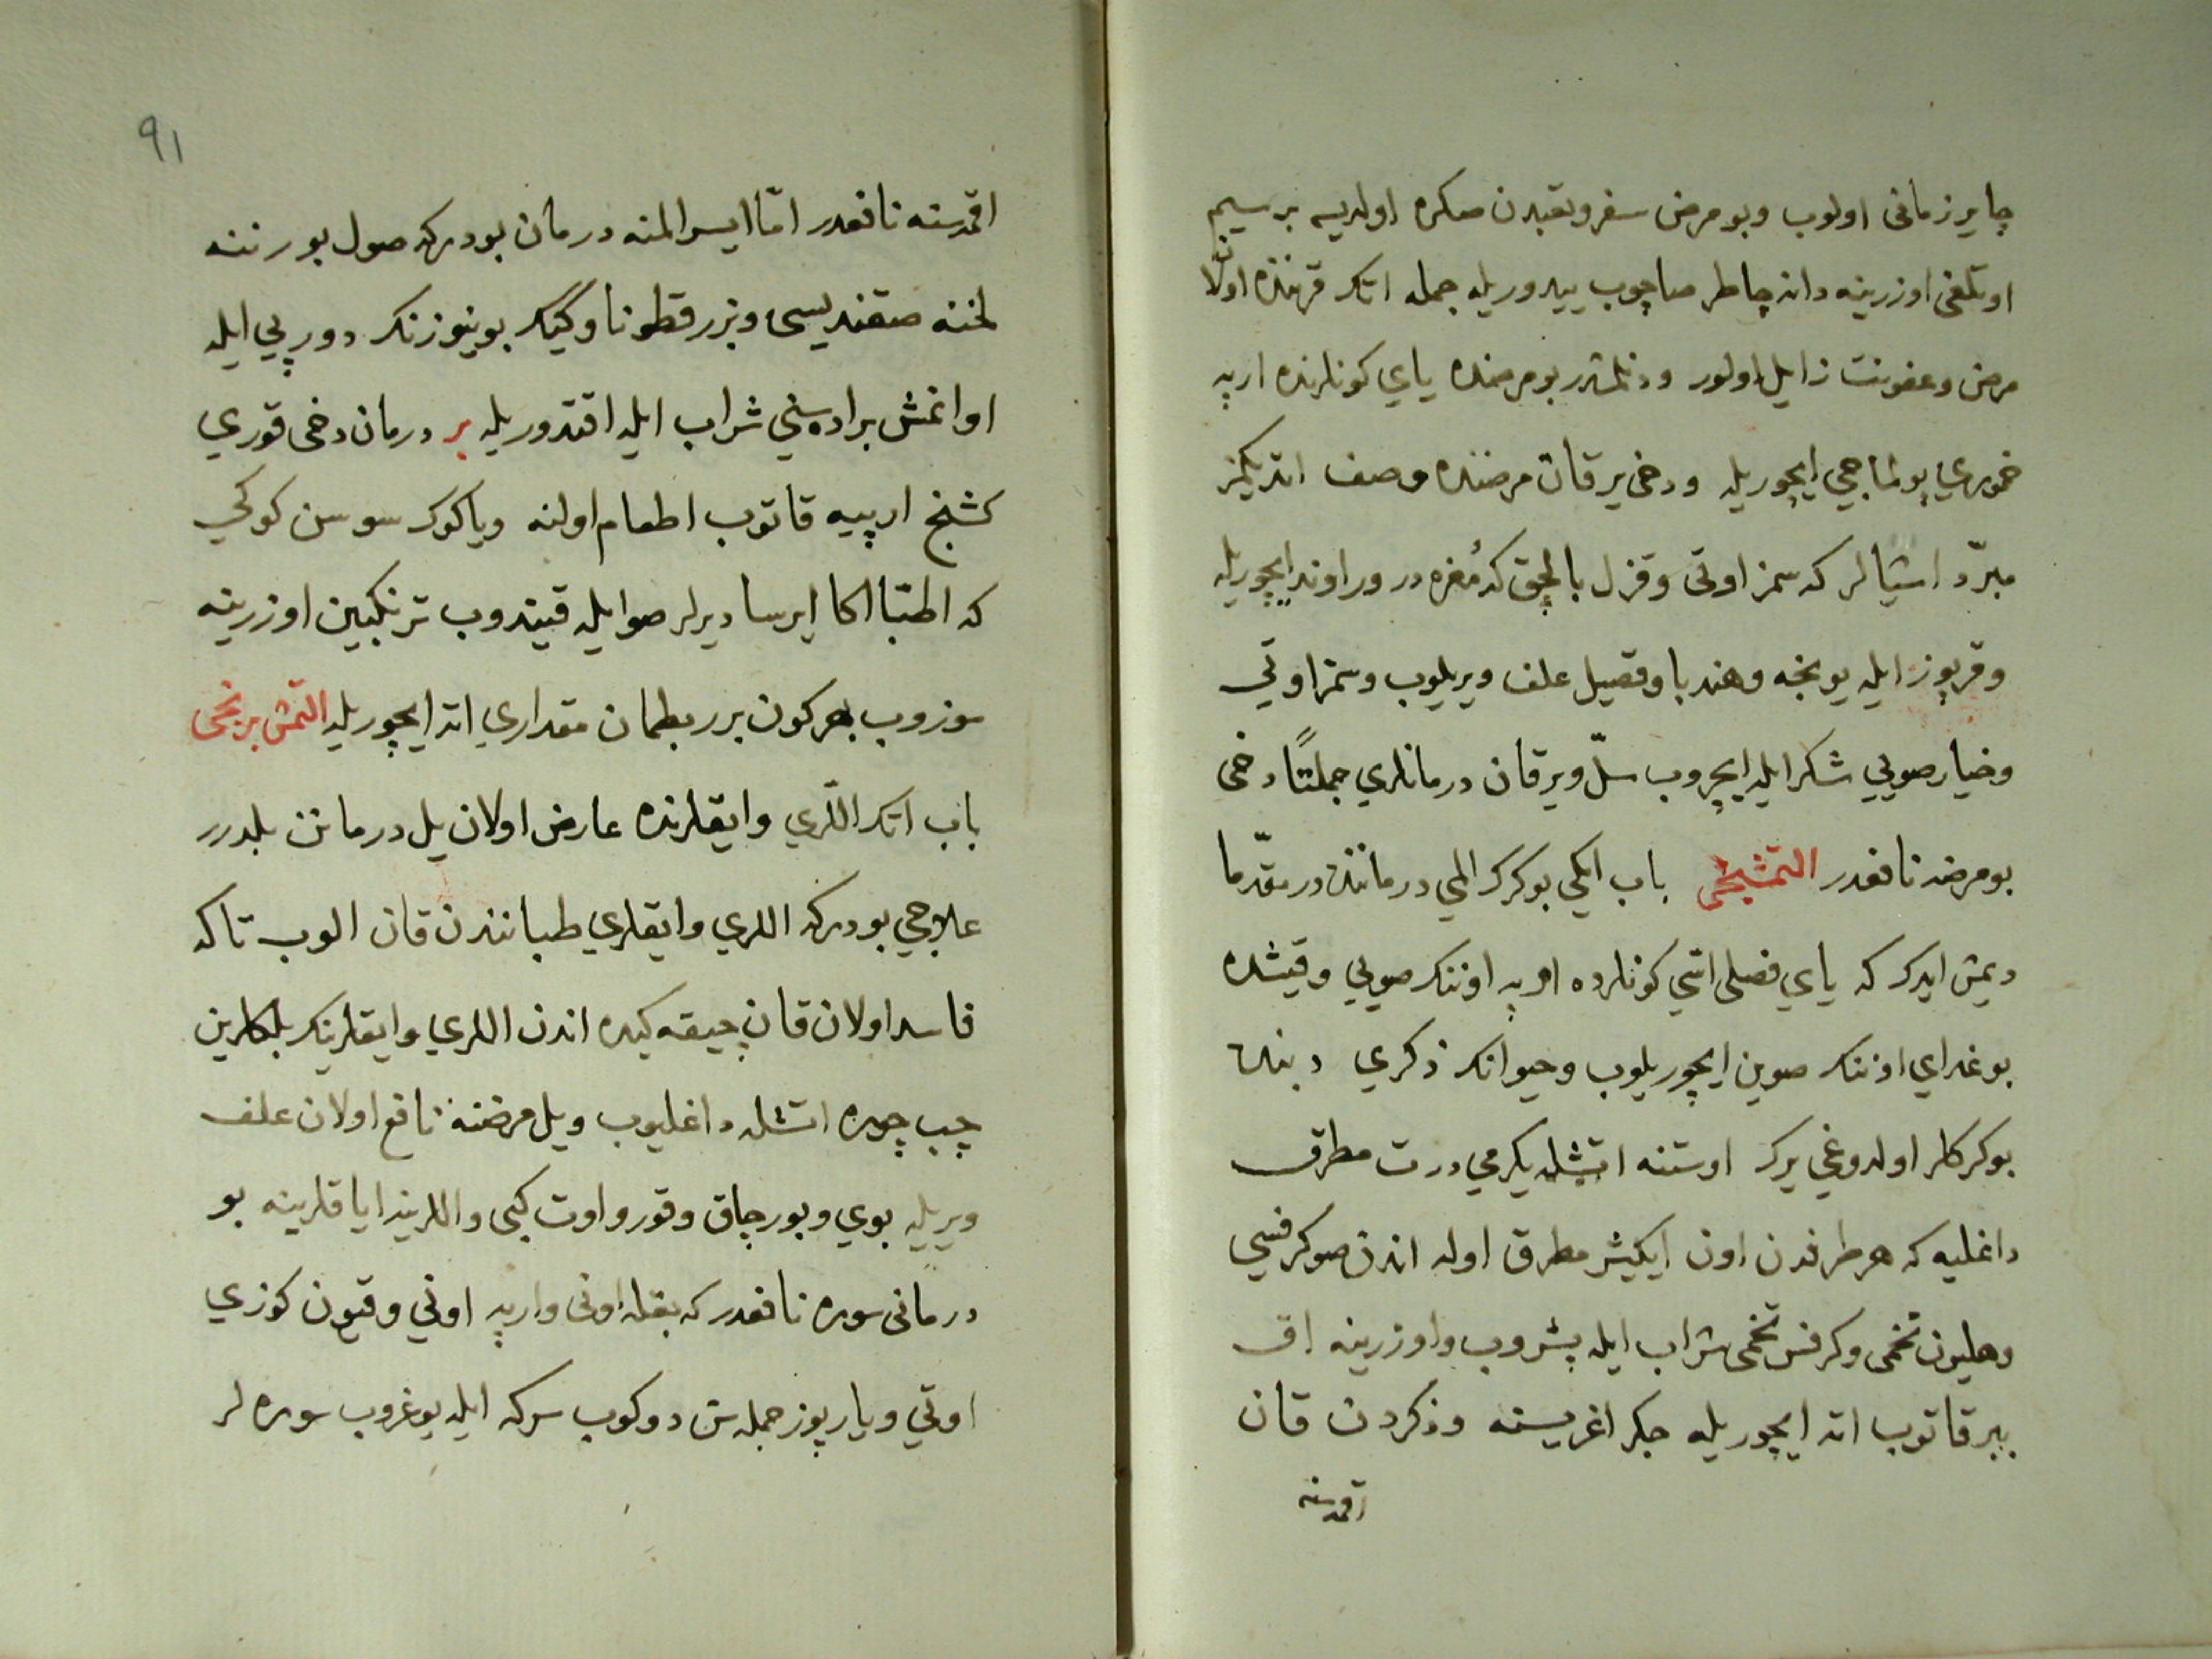 چایر زمانی اولوب وبو مرض سفر وتعبدن صکره اولدیسه بر سیم
اوتلغی اوزرینه دانه چاطر صاچوب ییدوریله جمله اتک قرننده اولان
مرض وعفونت زایل اولور ودنلمشدر بو مرضده یای کونلرنده ارپه
خموری بولماجی ایچوریله ودخی یرقان مرضنده وصف اتدیکمز
مبرّد اشیالر که سمز اوتی وقزل بالچق که مُغره در وراوند ایچوریله
وقرپوز ایله یونجه وهندبا وقصیل علف ویریلوب وسمز اوتی
وخیار صویی شکر ایله ایچروب سلّ ویرقان درمانلری جملتاً دخی
بو مرضه نافعدر التمشنجی باب ایکی بوکرک المی درماننده در مقدّما
دیمش ایدک که یای فصلی اسّی کونلرده ارپه اوننک صویی وقیشده
بوغدای اوننک صوین ایچوریلوب وحیوانک ذکری دبنده
بوکرکلر اولدوغی یرک اوستنه اتشله یکرمی درت مطرق
داغلیه که هر طرفدن اون ایکیشر مطرق اوله اندن صوکرفسی
وهلیون تخمی وکرفس تخمی شراب ایله پشروب واوزرینه اق
ببر قاتوب اته ایچوریله جکر اغریسنه وذکردن قان
اقمه‌سنه
٩١
اقمه‌سنه نافعدر امّا ایسر المنه درمان بودرکه صول بورننه
لخنه صقندیسی وبزر قطونا وکیک بوینوزنک دورپی ایله
اوانمش براده‌سنی شراب ایله اقتدوریله بر درمان دخی قوری
کشنج ارپیه قاتوب اطعام اولنه ویا کوک سوسن کوکی
که اطبّا اکا ایرسا دیرلر صو ایله قیندوب ترنکبین اوزرینه
سوزوب هر کون برر بطمان مقداری اته ایچوریله التمش برنجی
باب اتک اللری وایقلرنده عارض اولان یل درمانن بلدرر
علاجی بودرکه اللری وایقلری طباننندن قان الوب تاکه
فاسد اولان قان چیقه کیده اندن اللری وایقلرینک بلکلرین
چپ چوره اتشله داغلیوب ویل مرضنه نافع اولان علف
ویریله بوی وبورچاق وقورو اوت کبی واللرینه ایاقلرینه بو
درمانی سوره نافعدر که بقله اونی وارپه اونی وقیون کوزی
اوتی ویارپوز جمله‌سن دوکوب سرکه ایله یوغروب سوره لر